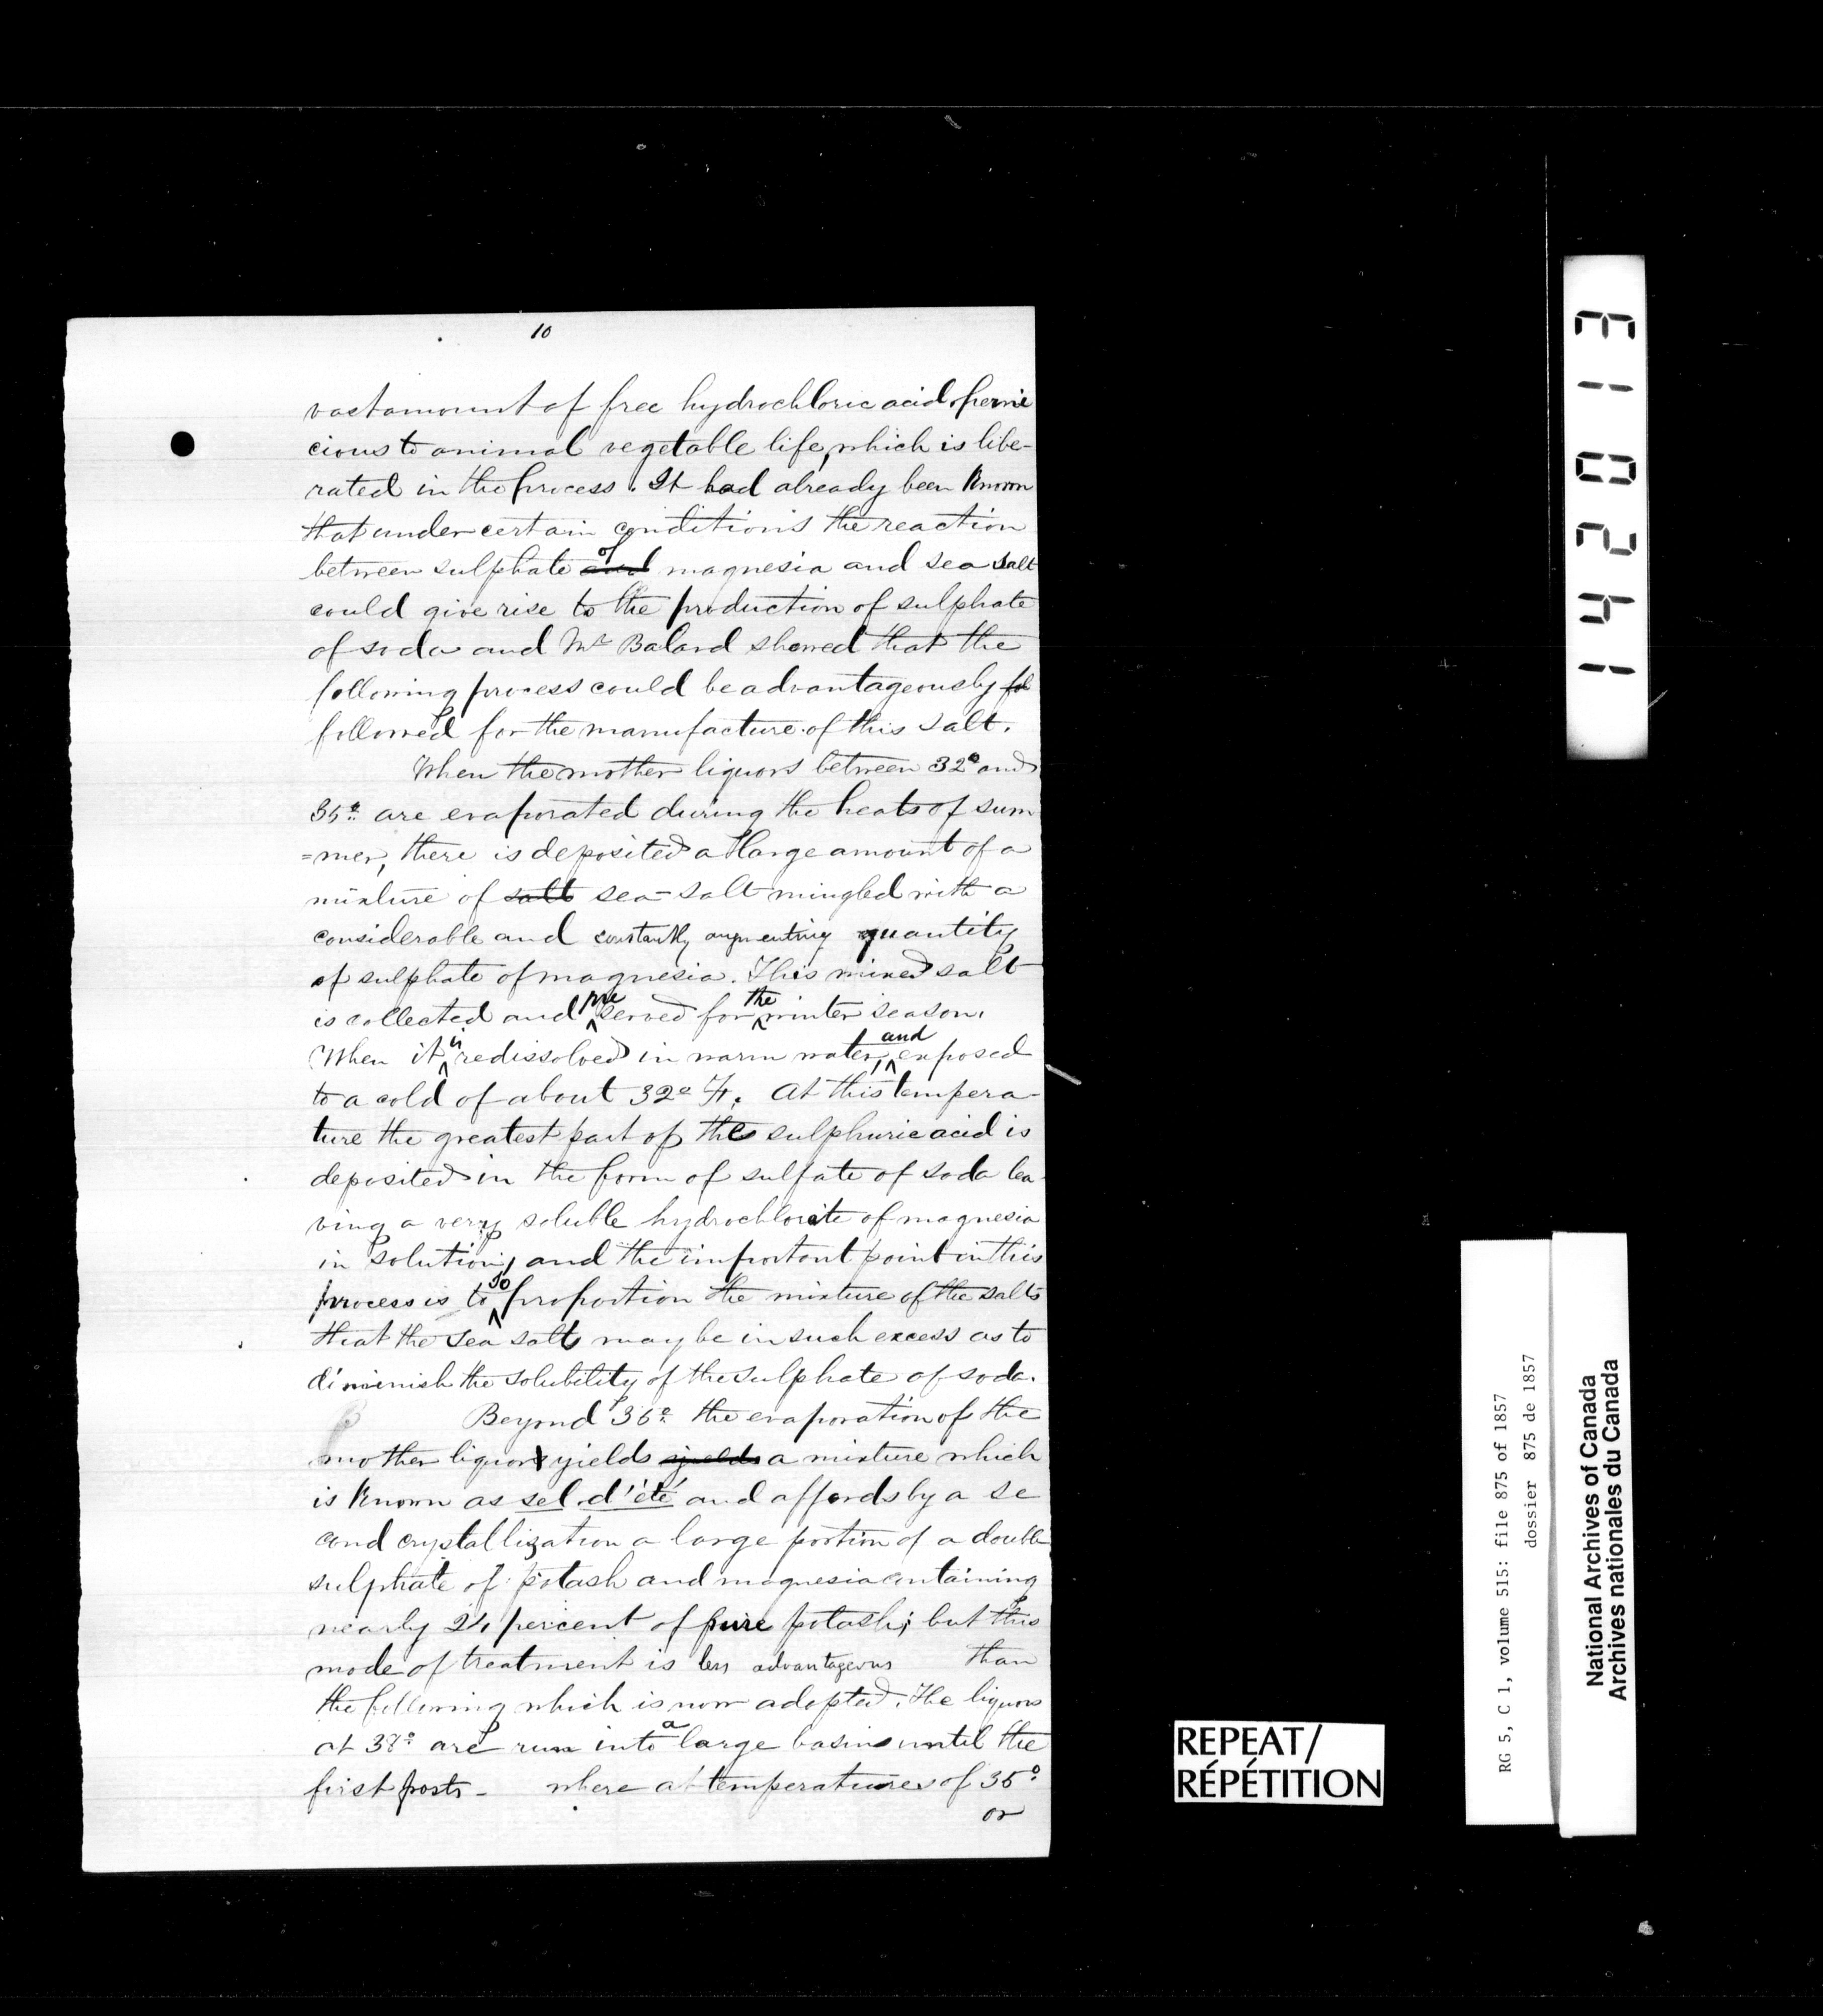 10
vast amount of free hydrochloric acid perni
cious to animal vegetable life, which is libe-
rated in the process. It had already been known
that under certain conditions the reaction
between sulphate ~~and~~ of magnesia and sea salt
could give rise to the production of sulphate
of soda and Mr Balard showed that the
following process could be advantageously ~~fol~~
followed for the manufacture of this salt.
When the mother liquors between 32° and
35° are evaporated during the heats of sum
=mer, there is deposited a large amount of a
mixture of ~~salt~~ sea-salt mingled with a
considerable and constantly augmenting quantity
of sulphate of magnesia. This mixed salt
is collected and preserved for the winter season.
When it is redissolved in warm water, and exposed
to a cold of about 32° F. At this tempera-
ture the greatest part of the sulphuric acid is
deposited in the form of sulfate of soda lea
ving a very soluble hydrochlorate of magnesia
in solution, and the important point in this
process is to so proportion the mixture of the salts
that the sea salt may be in such excess as to
diminish the solubility of the sulphate of soda.
Beyond 35° the evaporation of the
mother liquor yields ~~yields~~ a mixture which
is known as sel d'été and affords by a se
cond crystallization a large portion of a double
sulphate of potash and magnesia containing
nearly 24 percent of pure potash; but this
mode of treatment is less advantageous than
the following which is now adopted. The liquors
at 38° are run into a large basins until the
first frosts - where at temperatures of 35°
or
142013
RG 5, C 1, volume 515: file 875 of 1857
dossier 875 de 1857
National Archives of Canada
Archives nationales du Canada
REPEAT/
RÉPÉTITION